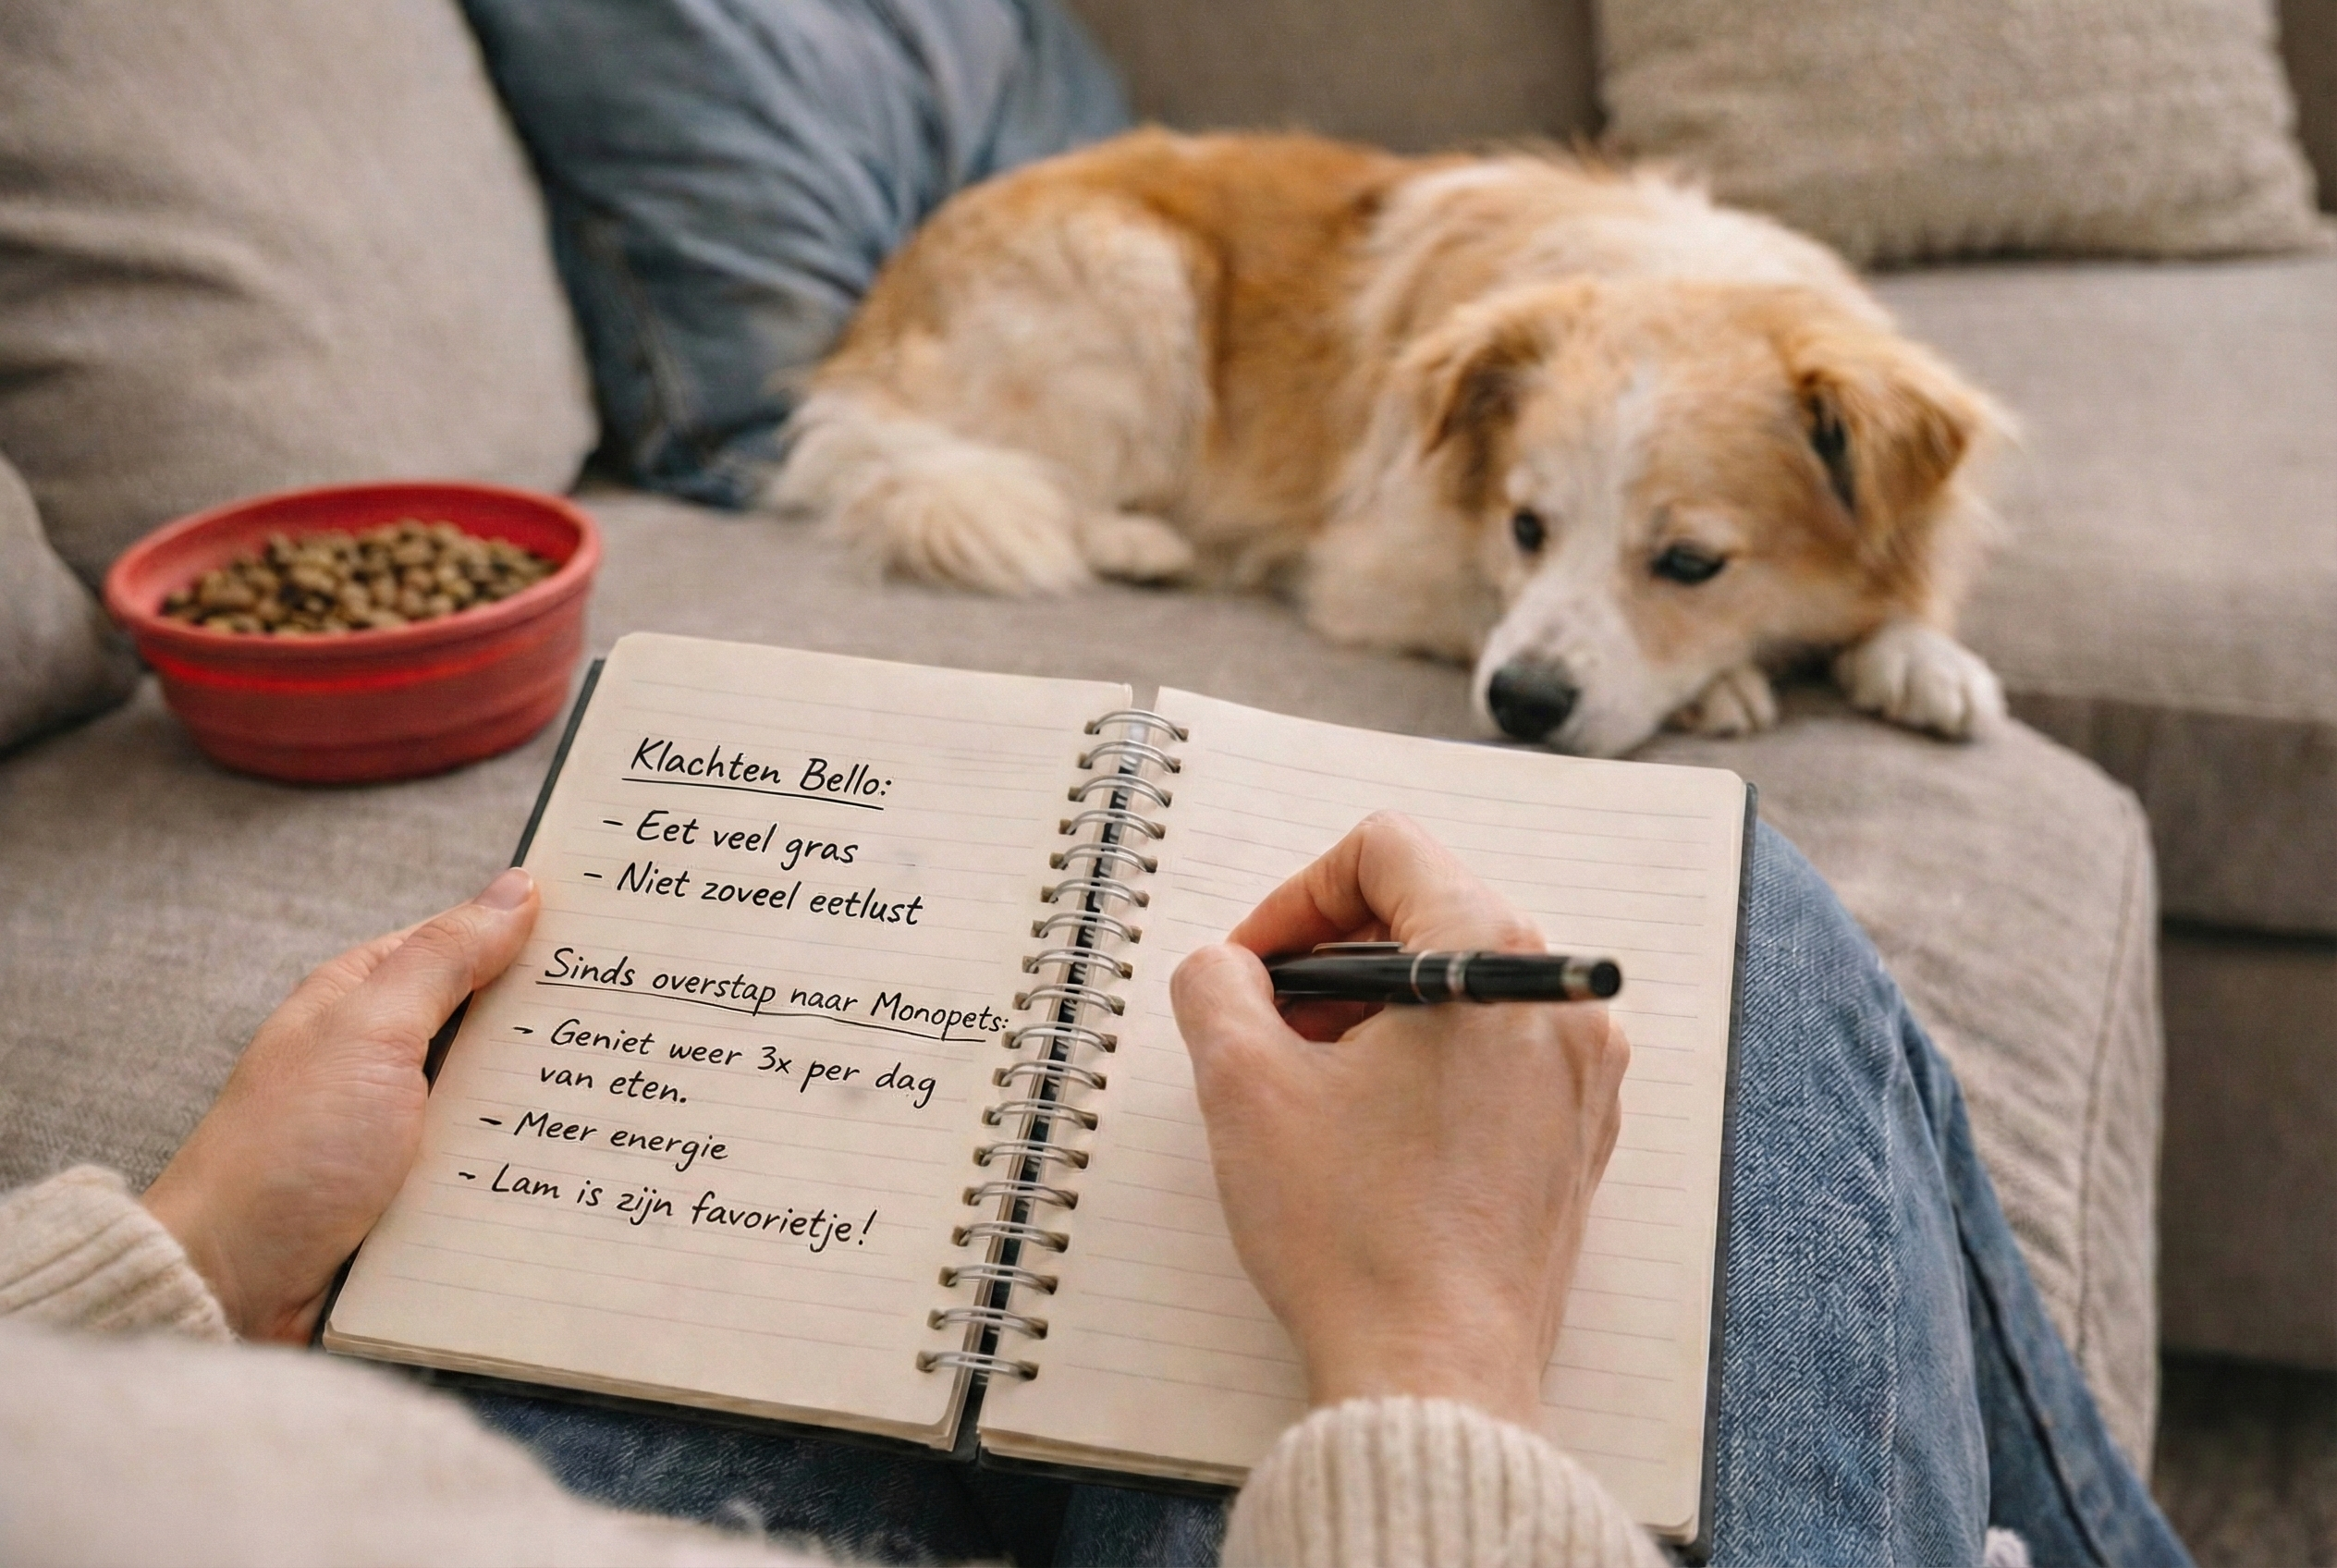 Klachten Bello:
- Eet veel gras
- Niet zoveel eetlust
Sinds overstap naar Monopets:
- Geniet weer 3x per dag
van eten.
- Meer energie
- Lam is zijn favorietje!